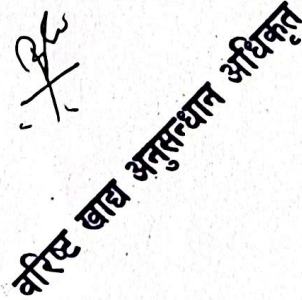 वरिष्ट खाद्य अनुसन्धान अधिकृत